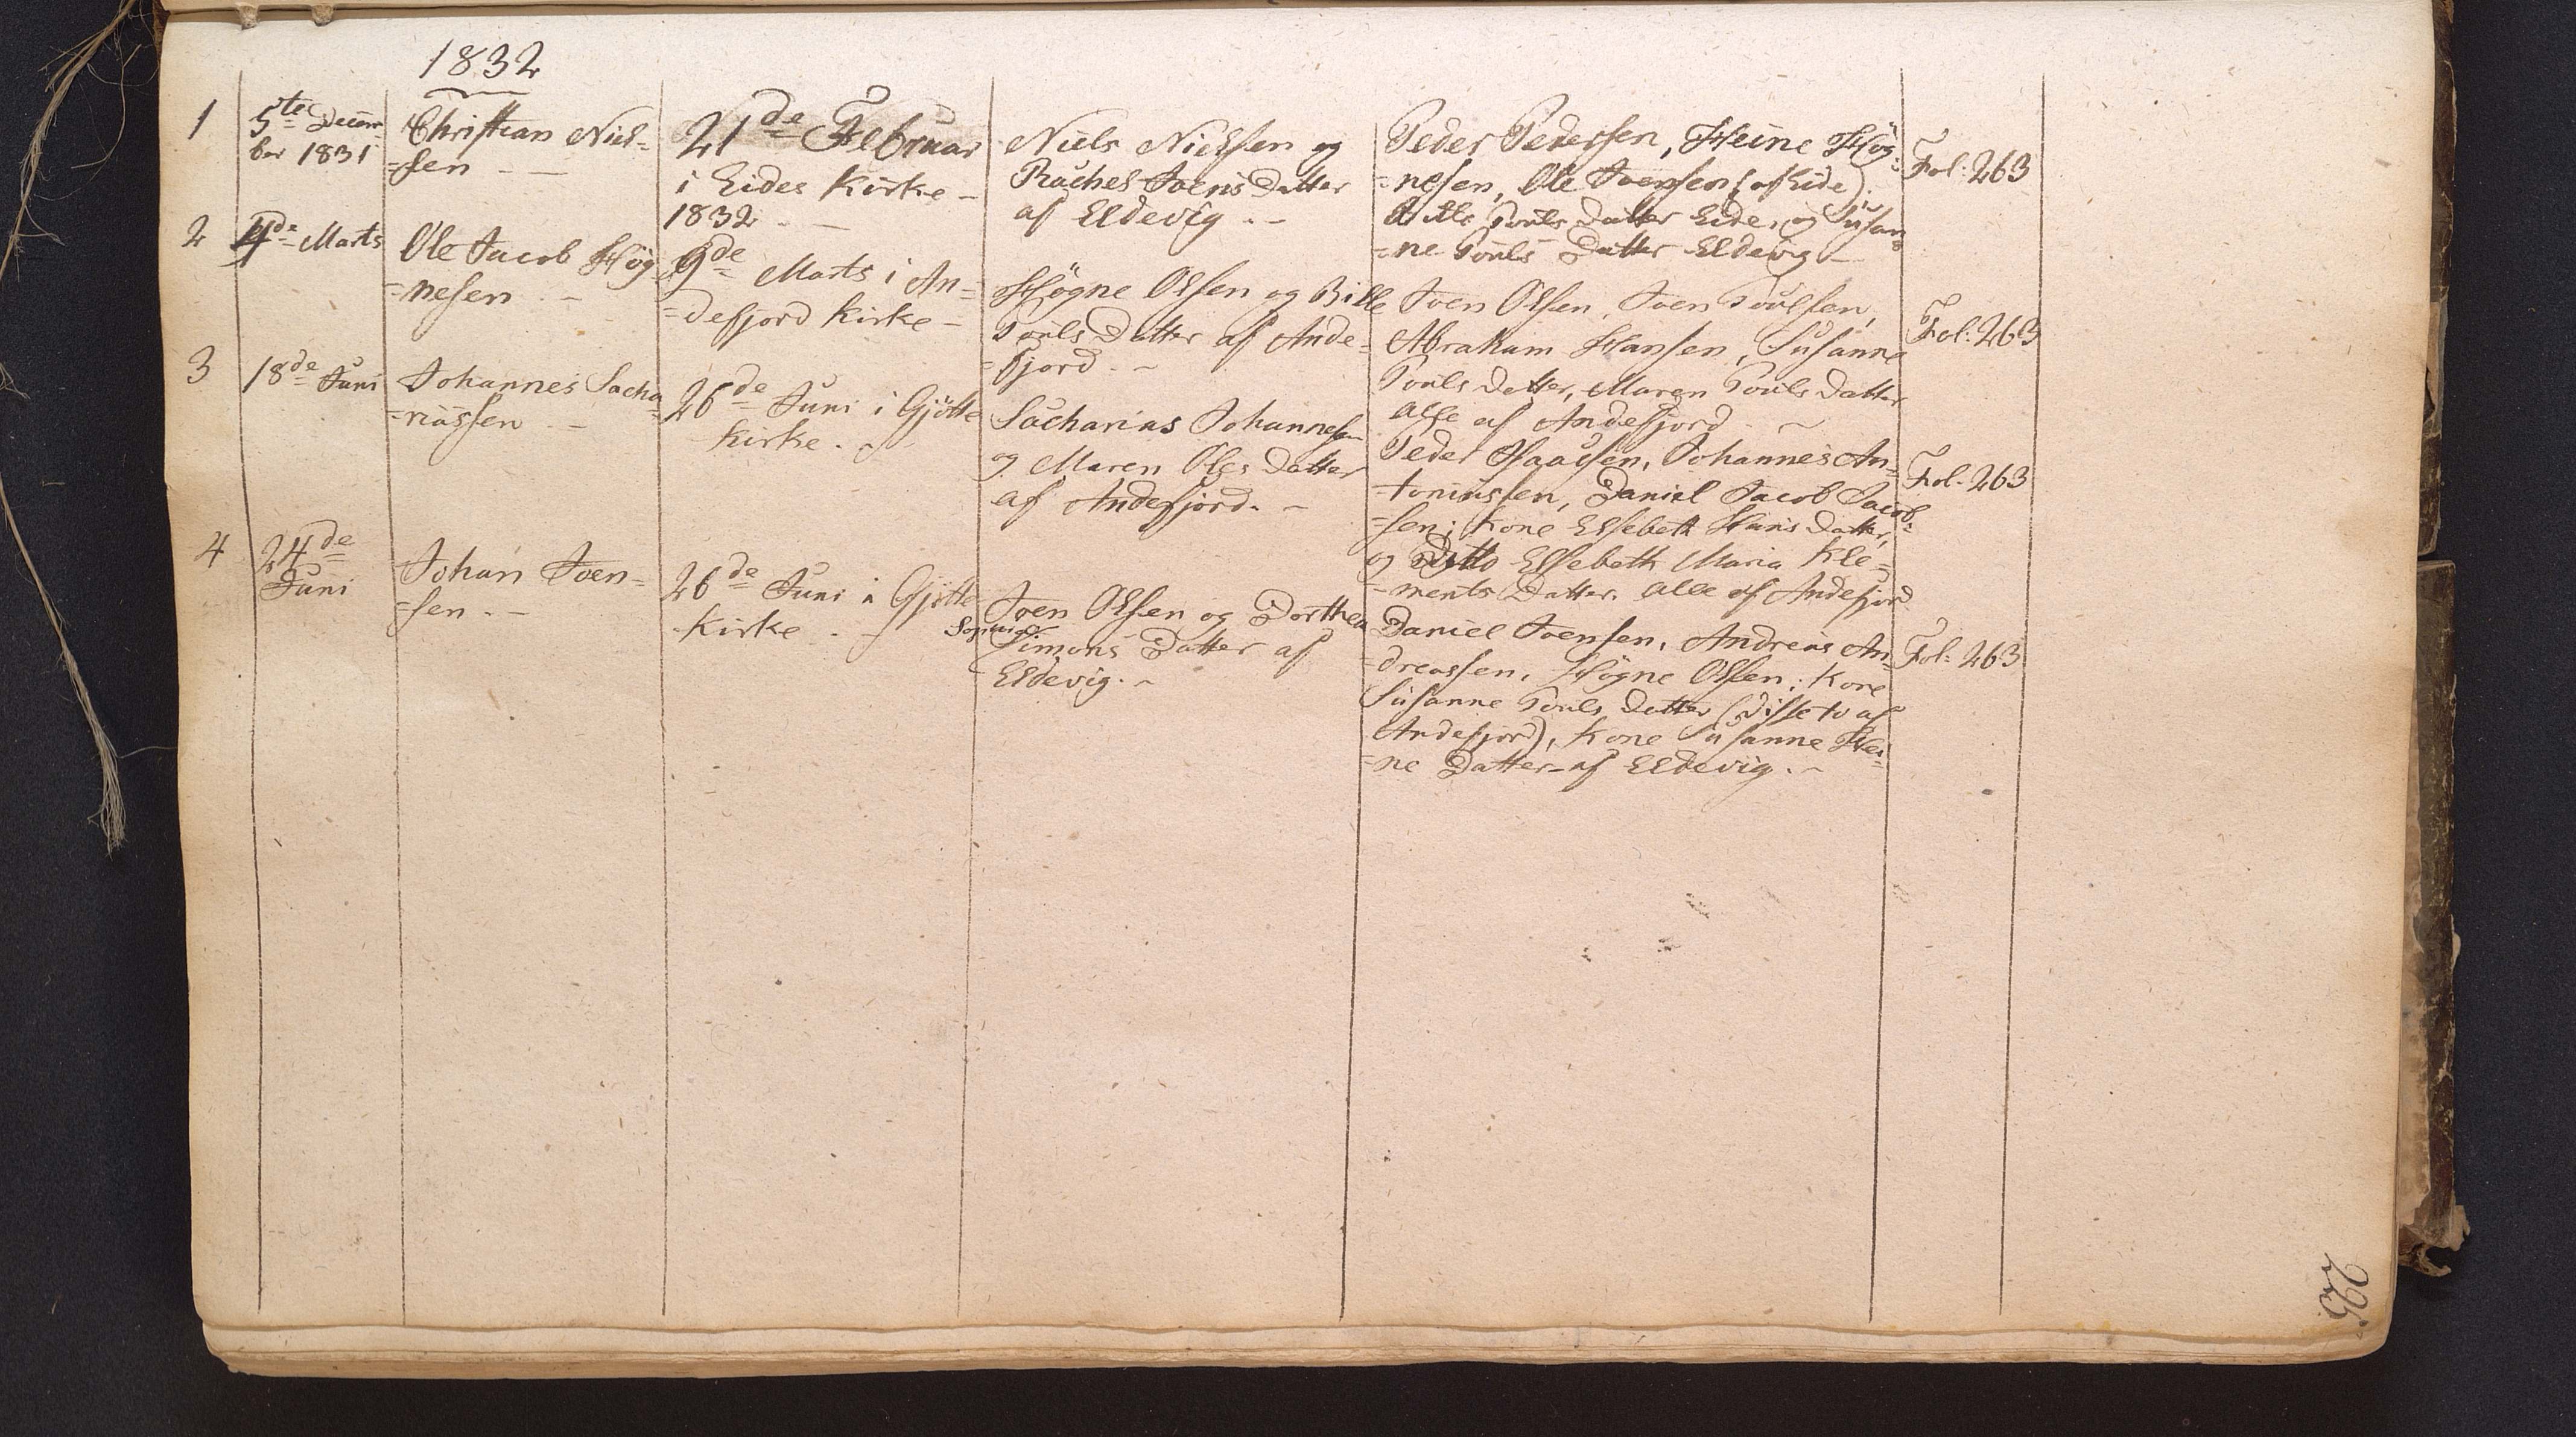 1832
1
5te Decem-
ber 1831
Christian Niel-
=sen
21de Februar
i Eides Kirke -
1832
Niels Nielsen og
Rachel Joens Datter
af Eldevig
Peder Pedersen, Heine Hög-
=nesen, Ole Joensen (af Eide).
Pouls Datter Eide, og Susan-
=ne Pouls Datter Eldevig
Fol: 263
2
4de Marts
Ole Jacob Hög-
=nesen
9de Marts i An-
=defjord Kirke -
Högne Olsen og Bille
Pouls Datter af Ande-
=fjord
Joen Olsen, Joen Poulsen,
Abraham Hansen, Susanne
Pouls Datter, Maren Pouls Datter
alle af Andefjord
Fol: 263
3
18de Juni
Johannes Sacha-
=riassen
26de Juni i Gjötte
Kirke
Sacharias Johannesen
og Maren Oles Datter
af Andefjord
Peder Isaacsen, Johannes An-
=toniussen, Daniel Jacob Jacob-
=sen; Kone Elsebeth Hans Datter,
og Ditto Elsebeth Maria Kle-
=ments Datter. alle af Andefjord
Fol: 263
4
24de
Juni
Johan Joen-
=sen
26de Juni i Gjötte
Kirke
Joen Olsen og Dorthea
Sophia
Simons Datter af
Eldevig
Daniel Joensen, Andreas An-
=dreassen, Högne Olsen; Kone
Susanne Pouls Datter (disse to af
Andefjord), Kone Susanne Hei-
=ne Datter af Eldevig
Fol: 263
295